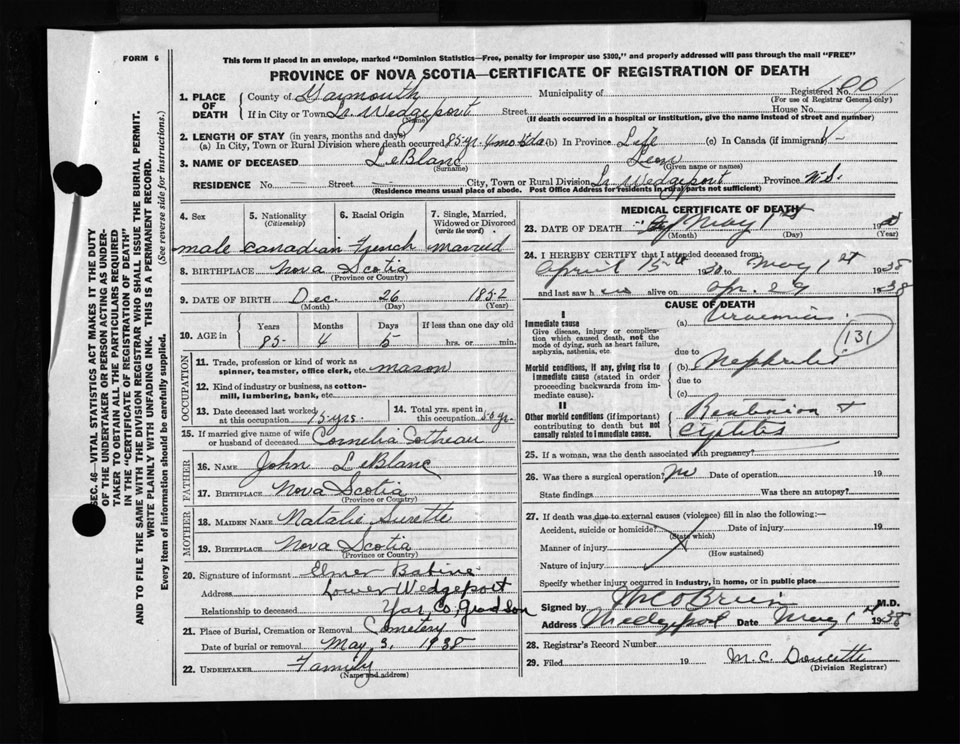 FORM 6
This form if placed in an envelope, marked "Dominion Statistics—Free, penalty for improper use $300," and properly addressed will pass through the mail "FREE"
PROVINCE OF NOVA SCOTIA—CERTIFICATE OF REGISTRATION OF DEATH
SEC. 46—VITAL STATISTICS ACT MAKES IT THE DUTY
OF THE UNDERTAKER OR PERSON ACTING AS UNDER-
TAKER TO OBTAIN ALL THE PARTICULARS REQUIRED
IN THE "CERTIFICATE OF REGISTRATION OF DEATH"
AND TO FILE THE SAME WITH THE DIVISION REGISTRAR WHO SHALL ISSUE THE BURIAL PERMIT.
WRITE PLAINLY WITH UNFADING INK. THIS IS A PERMANENT RECORD.
Every item of information should be carefully supplied. (See reverse side for instructions.)
1. PLACE OF DEATH County of Yarmouth Municipality of Registered No.
(For use of Registrar General only)
If in City or Town Lr. Wedgeport Street House No.
(Name) (If death occurred in a hospital or institution, give the name instead of street and number)
2. LENGTH OF STAY (in years, months and days)
(a) In City, Town or Rural Division where death occurred 85 yr. 4 mo. 5 da (b) In Province Life (c) In Canada (if immigrant)
3. NAME OF DECEASED LeBlanc Leon
(Surname) (Given name or names)
RESIDENCE No. — Street — City, Town or Rural Division Lr Wedgeport Province N.S.
(Residence means usual place of abode. Post Office Address for residents in rural parts not sufficient)
4. Sex 5. Nationality (Citizenship) 6. Racial Origin 7. Single, Married, Widowed or Divorced (write the word)
male Canadian French married
8. BIRTHPLACE Nova Scotia
(Province or Country)
9. DATE OF BIRTH Dec. 26 1852
(Month) (Day) (Year)
10. AGE in Years Months Days If less than one day old
85 4 5 hrs. or min.
OCCUPATION
11. Trade, profession or kind of work as spinner, teamster, office clerk, etc. mason
12. Kind of industry or business, as cotton-mill, lumbering, bank, etc.
13. Date deceased last worked at this occupation 15 yrs. 14. Total yrs. spent in this occupation 50 yr.
15. If married give name of wife or husband of deceased Cornelia
FATHER
16. NAME John LeBlanc
17. BIRTHPLACE Nova Scotia
(Province or Country)
MOTHER
18. MAIDEN NAME Natalie Surette
19. BIRTHPLACE Nova Scotia
(Province or Country)
20. Signature of informant Elmer Babine
Address Lower Wedgeport
Relationship to deceased Yar. Co, grandson
21. Place of Burial, Cremation or Removal Cemetery
Date of burial or removal May 3, 1938
22. UNDERTAKER Family
(Name and address)
MEDICAL CERTIFICATE OF DEATH
23. DATE OF DEATH May 1st 19
(Month) (Day) (Year)
24. I HEREBY CERTIFY that I attended deceased from:
April 15th 1930 to May 1st 1938
and last saw h im alive on Apr. 29 1938
CAUSE OF DEATH
I
Immediate cause (a) Uraemia
Give disease, injury or complication which caused death, not the mode of dying, such as heart failure, asphyxia, asthenia, etc.
131
due to
Morbid conditions, if any, giving rise to immediate cause (stated in order proceeding backwards from immediate cause). (b) Nephritis
due to
(c)
II
Other morbid conditions (if important) contributing to death but not causally related to immediate cause. Retention & Cystitis
25. If a woman, was the death associated with pregnancy?
26. Was there a surgical operation? no Date of operation 19
State findings Was there an autopsy?
27. If death was due to external causes (violence) fill in also the following:—
Accident, suicide or homicide? Date of injury 19
(State which)
Manner of injury
(How sustained)
Nature of injury
Specify whether injury occurred in industry, in home, or in public place
Signed by O'Brien M.D.
Address Wedgeport Date May 1st 1938
28. Registrar's Record Number
29. Filed 19 M. C. Doucette
(Division Registrar)